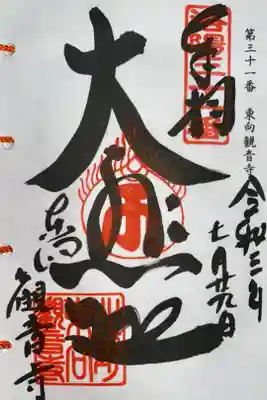 第三十一番 東向観音寺
奉拝
令和三年
大悲殿
東向
観音寺